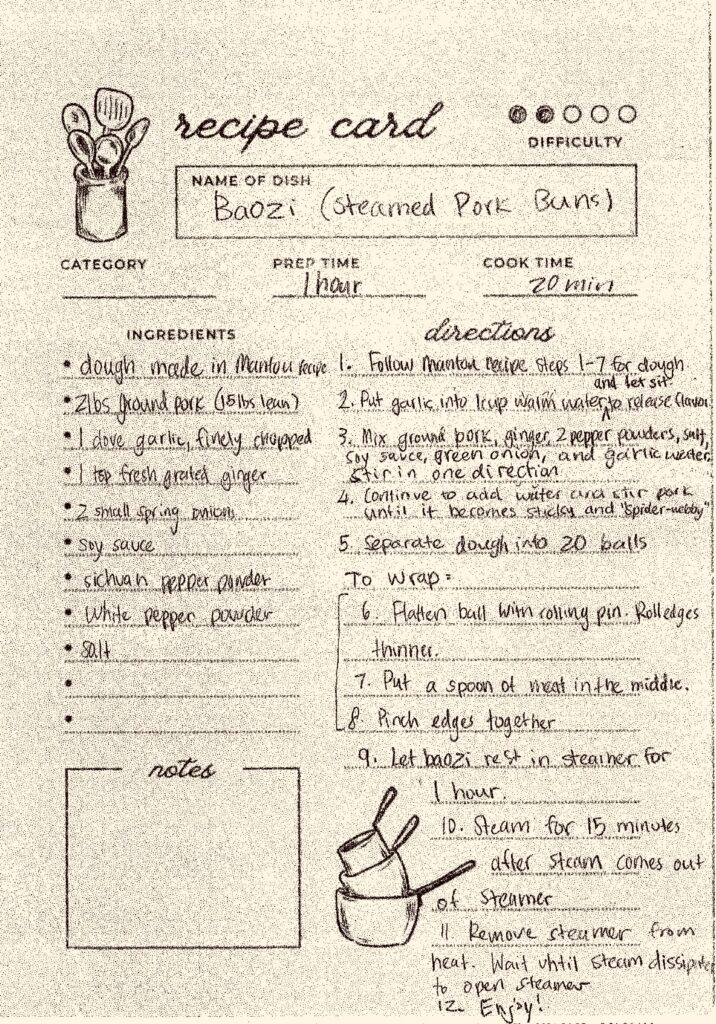 recipe card
DIFFICULTY
NAME OF DISH
Baozi (Steamed Pork Buns)
CATEGORY
PREP TIME
1 hour
COOK TIME
20 min
INGREDIENTS
• dough made in Mantou recipe
• 2 lbs ground pork (15lbs lean)
• 1 clove garlic, finely chopped
• 1 tsp fresh grated ginger
• 2 small spring onions
• soy sauce
• sichuan pepper powder
• White pepper powder
• Salt
•
•
notes
directions
1. Follow Mantou recipe steps 1-7 for dough
2. Put garlic into 1 cup warm water and let sit to release flavor
3. Mix ground pork, ginger, 2 pepper powders, salt,
soy sauce, green onion, and garlic water.
Stir in one direction
4. Continue to add water and stir pork
until it becomes sticky and "spider-webby"
5. Separate dough into 20 balls
To wrap:
6. Flatten ball with rolling pin. Roll edges
thinner.
7. Put a spoon of meat in the middle.
8. Pinch edges together
9. Let baozi rest in steamer for
1 hour.
10. Steam for 15 minutes
after steam comes out
of steamer
11 Remove steamer from
heat. Wait until steam dissipates
to open steamer
12. Enjoy!